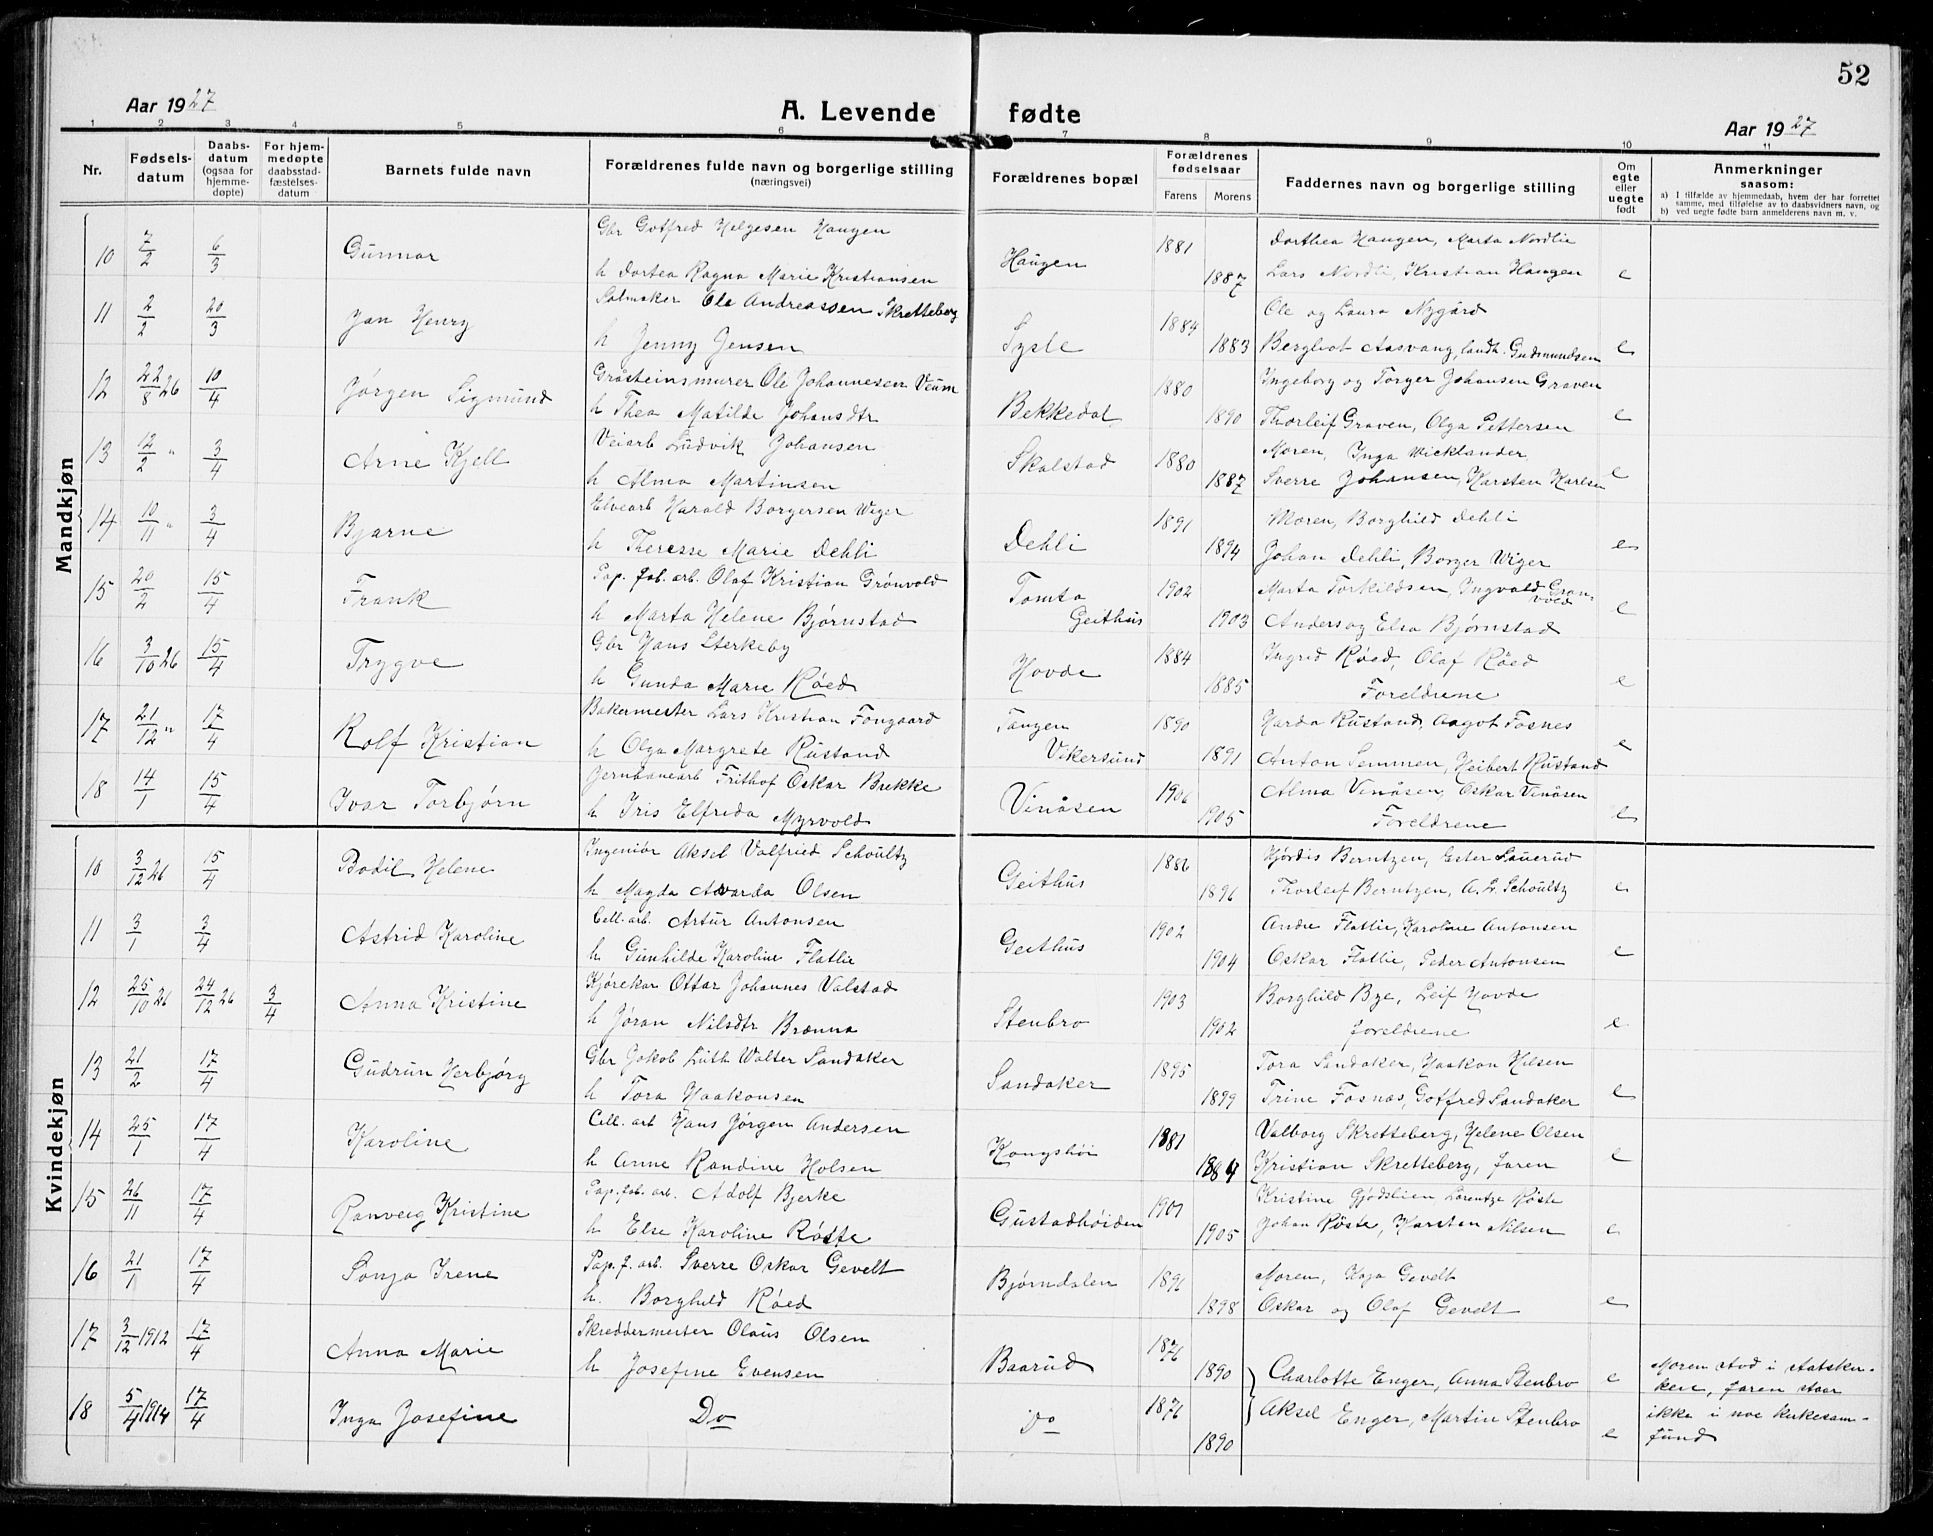 52
Aar 1927
A. Levende fødte
Aar 1927
1 2 3 4 5 6 7 8 9 10 11
Nr.
Fødsels-
datum
Daabs-
datum
(ogsaa for
hjemme-
døpte)
For hjem-
medøpte
daabsstad-
fæstelses-
datum
Barnets fulde navn
Forældrenes fulde navn og borgerlige stilling
(næringsvei)
Forældrenes bopæl
Forældrenes
fødselsaar
Farens Morens
Faddernes navn og borgerlige stilling
Om
egte
eller
uegte
født
Anmerkninger
saasom:
a) I tilfælde av hjemmedaab, hvem der har forrettet
samme, med tilføielse av to daabsvidners navn, og
b) ved uegte fødte barn anmelderens navn m. v.
Mandkjøn
Gbr Gotfred Helgesen Haugen 1881 Dorthea Haugen, Marta Nordlie
10 7/2 6/3 Gunnar h Dortea Ragna Marie Kristiansen Haugen 1887 Lars Nordli, Kristian Haugen e
Salmaker Ole Andreassen Skretteberg 1884 Ole og Laura Nygård
11 2/2 20/3 Jan Henry h Jenny Jensen Sysle 1883 Bergliot Aasvang, landh. Gudmundsen e
Gråsteinsmurer Ole Johannesen Veum 1880 Ingeborg og Torger Johansen Graven
12 22/8 26 10/4 Jørgen Sigmund h Thea Matilde Johansdtr Bekkedal 1890 Thorleif Graven, Olga Pettersen e
Veiarb Ludvik Johansen 1880 Moren, Inga Wicklander
13 12/2 " 3/4 Arne Kjell h Alma Martinsen Skalstad 1887 Sverre Johansen, Karsten Karlsen e
Elvearb Harald Borgersen Wiger 1891 Moren, Borghild Dehli
14 10/11 " 3/4 Bjarne h Theresse Marie Dehli Dehli 1894 Johan Dehli, Borger Wiger e
Pap. fab. arb. Olaf Kristian Grønvold Tomta 1902 Marta Torkildsen, Ingvald Grøn-
vold
15 20/2 15/4 Frank h Marta Helene Bjørnstad Geithus 1903 Anders og Elsa Bjørnstad e
Gbr Hans Sterkeby 1884 Ingrid Røed, Olaf Røed
16 3/10 26 15/4 Trygve h Gunda Marie Røed Hovde 1885 Foreldrene e
Bakermester Lars Kristian Fongaard Tangen 1890 Harda Rustand, Aagot Fosnes
17 21/12 " 17/4 Rolf Kristian h Olga Margrete Rustand Vikersund 1891 Anton Semmen, Heibert Rustand e
Jernbanearb Frithof Oskar Brekke 1906 Alma Vinåsen, Oskar Vinåsen
18 14/1 15/4 Ivar Torbjørn h Iris Elfreda Myrvold Vinåsen 1905 Foreldrene e
Kvindekjøn
Ingeniør Aksel Valfried Schoultz 1886 Hjørdis Berntzen, Ester Sauerud
10 3/12 26 15/4 Bodil Helene h Magda Awarda Olsen Geithus 1896 Thorleif Berntzen, A. L. Schoultz e
Cell. arb. Artur Antonsen 1902 Andre Flatlie, Karoline Antonsen
11 3/1 3/4 Astrid Karoline h Gunhilde Karoline Flatlie Geithus 1904 Oskar Flatlie, Peder Antonsen e
Kjørekar Ottar Johannes Valstad 1903 Borghild Bye, Leif Hovde
12 25/10 26 24/12 26 3/4 Anna Kristine h Jøran Nilsdtr Brænna Stenbro 1902 foreldrene e
Gbr Jakob Luth Walter Sandaker 1895 Tora Sandaker, Haakon Hilsen
13 21/2 17/4 Gudrun Herbjørg h Tora Haakonsen Sandaker 1899 Trine Fosnæs, Gotfred Sandaker e
Cell. arb Hans Jørgen Andersen 1881 Valborg Skretteberg, Helene Olsen
14 25/1 17/4 Karoline h Anne Randine Holsen Kongshøi 1884 Kristian Skretteberg, faren e
Pap. fab. arb. Adolf Bjerke 1901 Kristine Gjødslien Lorentze Røste
15 26/11 17/4 Ranveig Kristine h Else Karoline Røste Gustadhøiden 1905 Johan Røste, Karsten Nilsen e
Pap. f. arb. Sverre Oskar Gevelt 1896 Moren, Kaja Gevelt
16 21/1 17/4 Sonja Irene h. Borghild Røed Bjørndalen 1898 Oskar og Olaf Gevelt e
Skreddermester Olaus Olsen 1876
17 3/12 1912 17/4 Anna Marie h Josefine Evensen Baarud 1890 Charlotte Enger, Anna Stenbro e Moren stod i statskir-
ken, faren staar
18 5/4 1914 17/4 Inga Josefine Do Do 1876 Aksel Enger, Martin Stenbro ikke i noe kirkesam-
1890 e fund